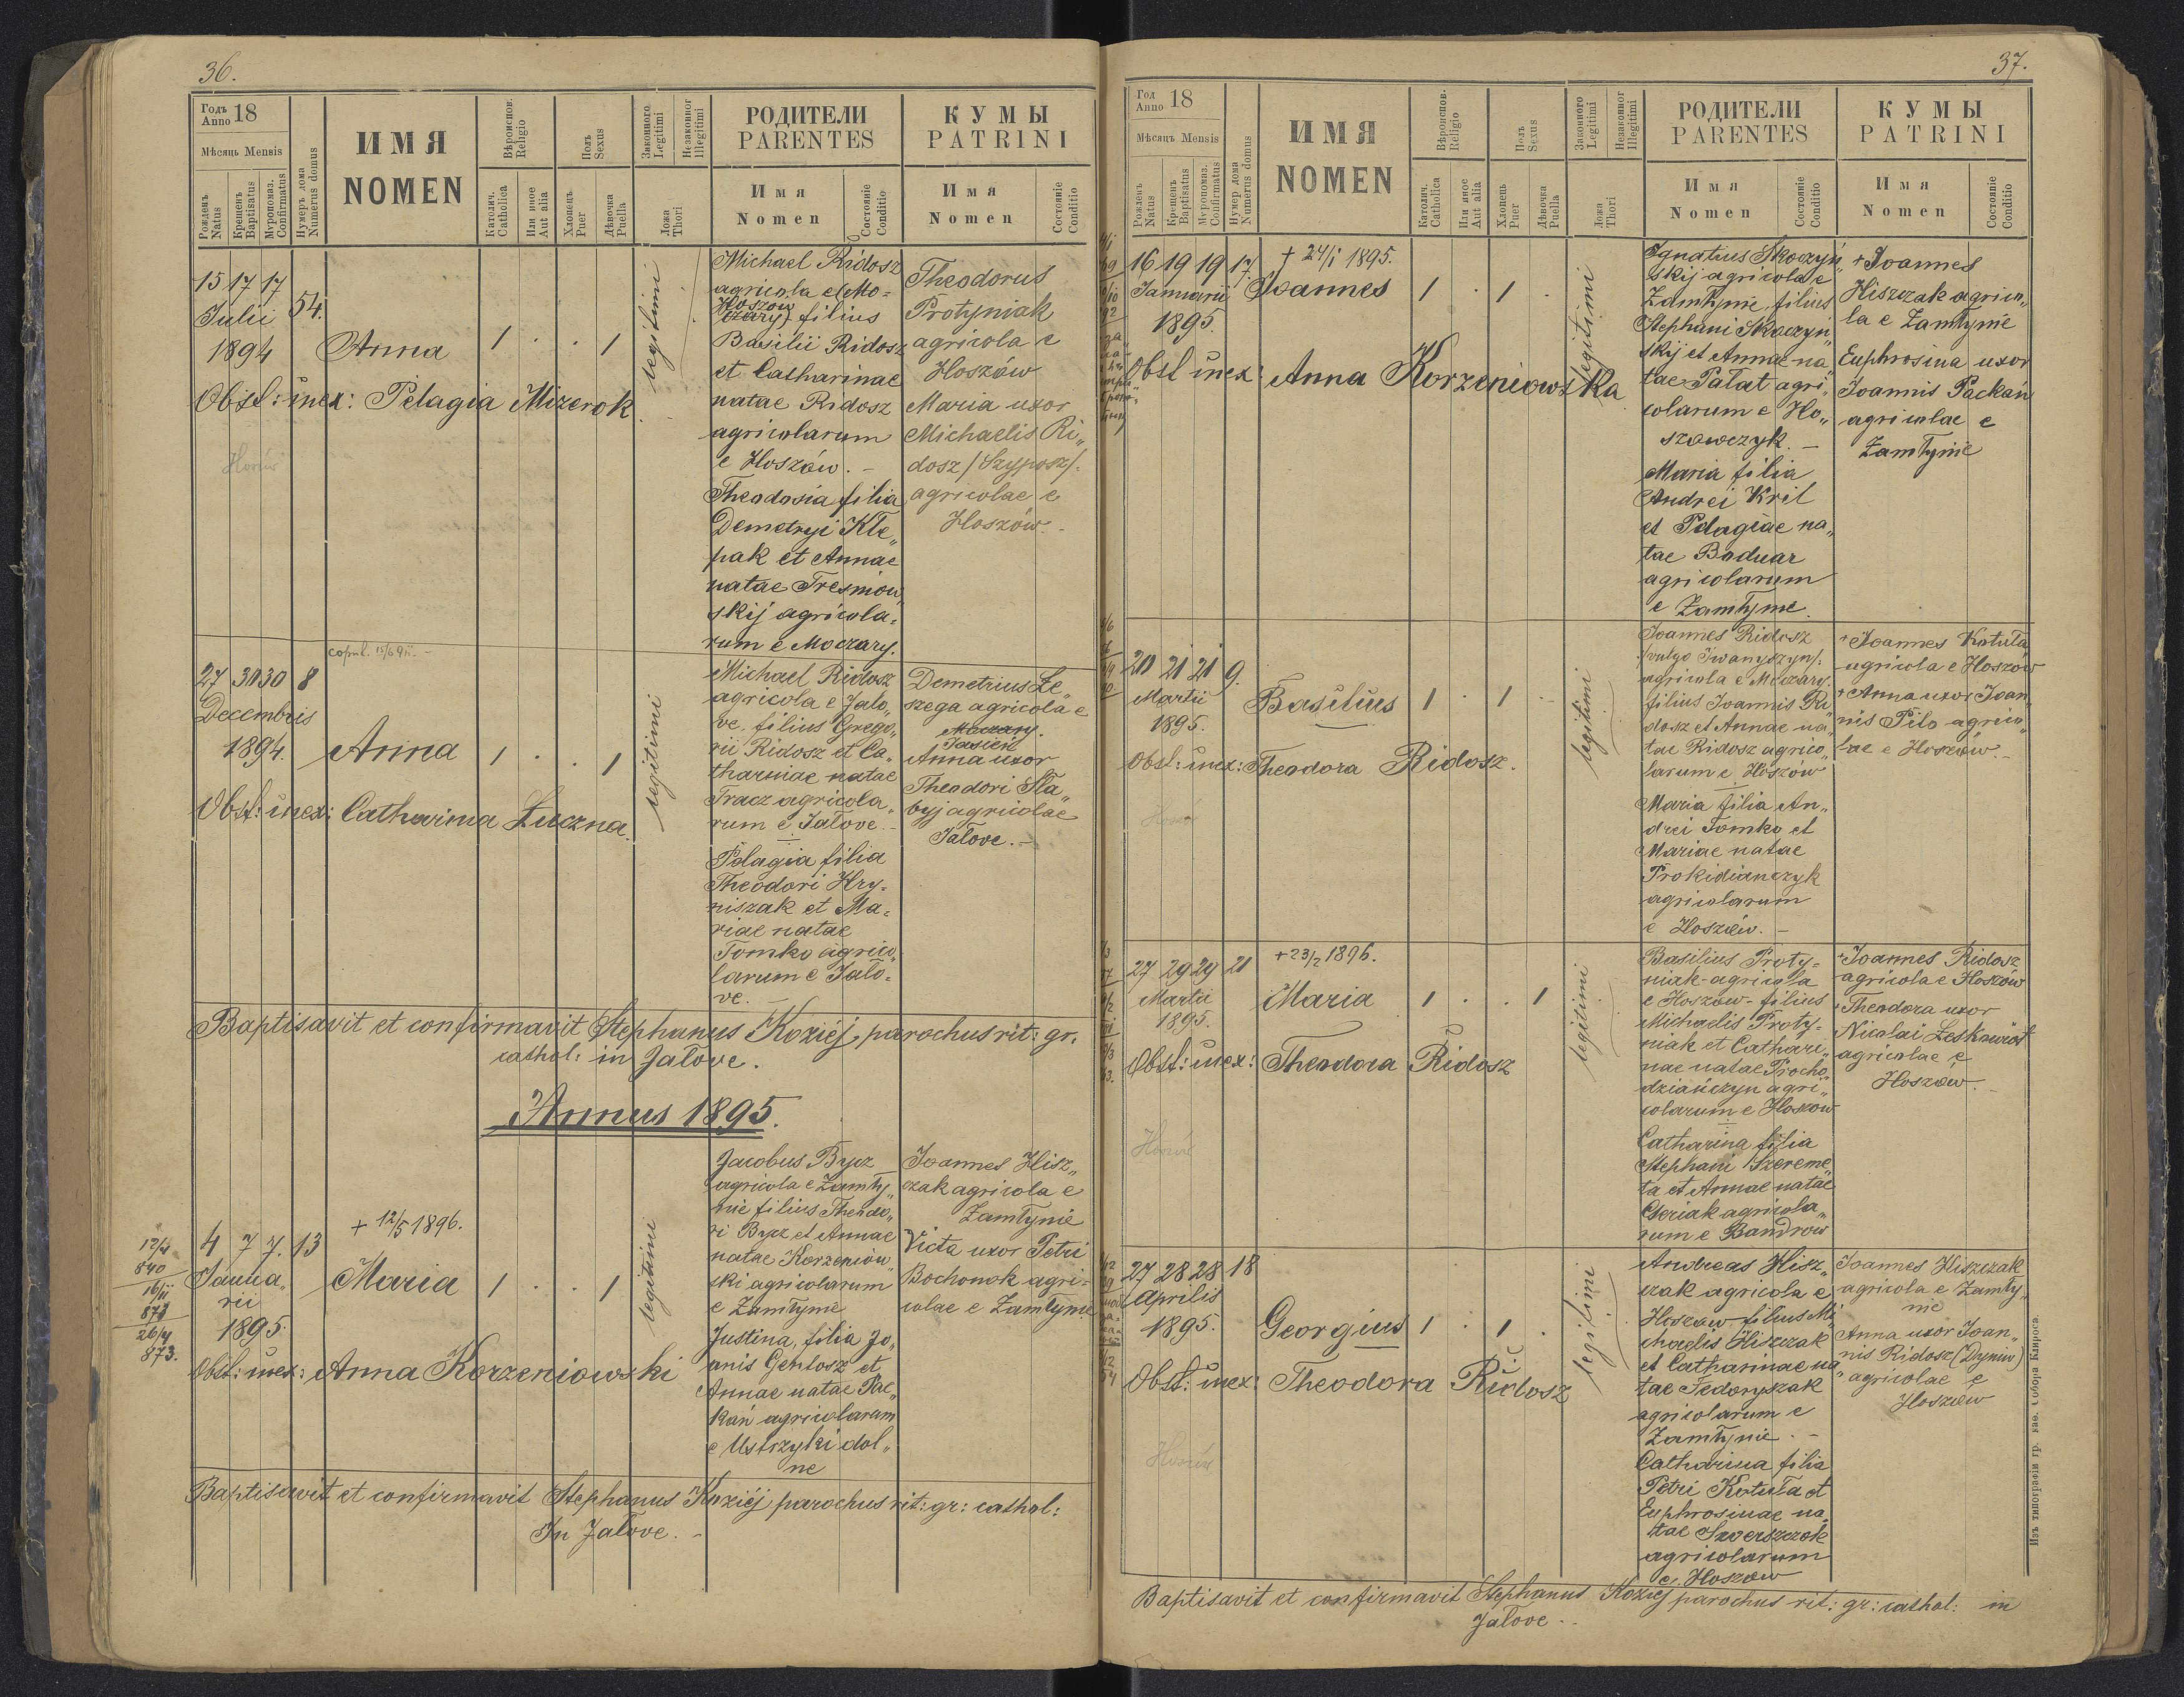 36.
Годъ
Anno 18
Мѣсяць Mensis
Рожденъ
Natus
Крещенъ
Baptisatus
Муропомаз.
Confirmatus
Нумеръ дома
Numerus domus
ИМЯ
NOMEN
Вѣроисповѣ.
Religio
Католич.
Catholica
Или иное
Aut alia
Полъ
Sexus
Хлопецъ
Puer
Дѣвочка
Puella
Законного
Legitimi
Незаконног
Illegitimi
Ложа
Thori
РОДИТЕЛИ
PARENTES
Имя
Nomen
Состояніе
Conditio
КУМЫ
PATRINI
Имя
Nomen
Состояніе
Conditio
15 17 17
Julii
1894
54.
Anna
1 . . 1
legitimi
Obst: inex: Pelagia Mizerok
Michael Ridosz
agricola e (Mo=
Hoszów
czary) filius
Basilii Ridosz
et Catharinae
natae Ridosz
agricolarum
e Hoszów. –
Theodosia filia
Demetryi Kle„
pak et Annae
natae Tresniow„
skij agricola=
rum e Moczary.
Theodorus
Protyniak
agricola e
Hoszów
Maria uxor
Michaelis Ri„
dosz /Szyposz/.
agricolae e
Hoszów. –
copul.
27 30 30 8
Decembris
1894.
Anna
1 . . 1
legitimi
Obst: inex: Catharina Łuczna.
Michael Ridosz
agricola e Jało„
ve filius Grego„
rii Ridosz et Ca„
tharinae natae
Tracz agricola„
rum e Jałove. –
Pelagia filia
Theodori Hry=
niszak et Ma=
riae natae
Tomko agrico„
larum e Jało=
ve. –
Demetrius Le„
szega agricola e
Moczary.
Jasień
Anna uxor
Theodori Sła„
byj agricolae
Jałove. –
Baptisavit et confirmavit Stephanus Koziéj, parochus rit: gr.
cathol: in Jałove.
Annus 1895.
12/3
840
16/II
873
26/4
873.
4 7 7. 13
Janua„
rii
1895.
+ 12/5 1896.
Maria
1 . . 1
legitimi
Obst: inex: Anna Korzeniowski
Jacobus Bycz
agricola e Zamły„
nie filius Theodo„
ri Bycz et Annae
natae Korzeniow„
ski agricolarum
e Zamłynie
Justina, filia Jo„
anis Genlosz et
Annae natae Pac„
kań agricolarum
e Ustrzyki dol„
ne
Joannes Hisz„
czak agricola e
Zamłynie
Victa uxor Petri
Bochonok agri=
colae e Zamłynie
Baptisavit et confirmavit Stephanus Koziéj parochus rit: gr: cathol:
In Jałove. –
37.
Год
Anno 18
Мѣсяць Mensis
Рожденъ
Natus
Крещенъ
Baptisatus
Муропомаз.
Confirmatus
Нумер дома
Numerus domus
ИМЯ
NOMEN
Вѣроисповѣ.
Religio
Католич.
Catholica
Или иное
Aut alia
Полъ
Sexus
Хлопецъ
Puer
Дѣвочка
Puella
Законного
Legitimi
Незаконног
Illegitimi
Ложа
Thori
РОДИТЕЛИ
PARENTES
Имя
Nomen
Состояніе
Conditio
КУМЫ
PATRINI
Имя
Nomen
Состояніе
Conditio
16 19 19 17
Januarii
1895.
+ 24/I 1895.
Joannes
1 . 1 .
legitimi
Obst inex: Anna Korzeniowska
Ignatius Skoczyń„
skij agricola e
Zamłynie, filius
Stephani Skoczyń„
skij et Annae na„
tae Pałat agri„
colarum e Ho„
szowczyk. –
Maria filia
Andrei Kril
et Pelagiae na„
tae Boduar
agricolarum
e Zamłynie.
+ Joannes
Hiszczak agrico„
la e Zamłynie
Euphrosina uxor
Joannis Packań
agricolae e
Zamłynie
20 21 21 9.
Martii
1895.
Basilius
1 . 1 .
legitimi
Obst: inex: Theodora Ridosz.
Joannes Ridosz
/vulgo Iwanyszyn/.
agricola e Moczary.
filius Joannis Ri„
dosz et Annae na„
tae Ridosz agrico„
larum e Hoszów
Maria filia An„
drei Tomko et
Mariae natae
Prokidianczyk
agricolarum
e Hoszów. –
Joannes Kotuła
agricola e Hoszów
Anna uxor Joan„
nis Pilo agrico„
lae e Hoszów. –
27 29 29 21
Martii
1895.
+ 23/2 1896.
Maria
1 . . 1
legitimi
Obst: inex: Theodora Ridosz
Basilius Proty=
niak agricola
e Hoszów – filius
Michaelis Proty=
niak et Cathari„
nae natae Procho„
dziańczyn agri„
colarum e Hoszów
Catharina filia
Stephani Szereme„
ta et Annae natae
Cseriak agricola„
rum e Bandrow
Joannes Ridosz
agricola e Hoszów
Theodora uxor
Nicolai Leskowiat
agricolae e
Hoszów. –
27 28 28 18
Aprilis
1895.
Georgius
1 . 1 .
legitimi
Obst: inex: Theodora Ridosz
Andreas Hisz„
czak agricola e
Hoszow filius Mi„
chaelis Hiszczak
et Catharinae na„
tae Fedoryszak
agricolarum e
Zamłynie. –
Catharina filia
Petri Kotuła et
Euphrosinae na„
tae Szwerszczak
agricolarum
e. Hoszów
Joannes Hiszczak
agricola e Zamły„
nie
Anna uxor Joan„
nis Ridosz (Dryniw)
agricolae e
Hoszów
Baptisavit et confirmavit Stephanus Koziéj parochus rit: gr: cathol: in
Jałove. –
Изъ типографіи гр. каѳ. Собора Клироса.